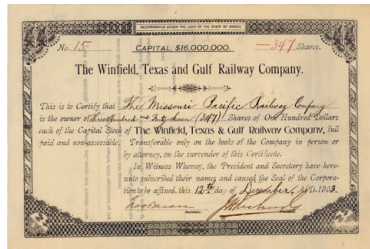 INCORPORATED UNDER THE LAWS OF THE STATE OF KANSAS
No. 15 CAPITAL, $16,000,000. 347 Shares.
The Winfield, Texas and Gulf Railway Company.
This is to Certify that The Missouri Pacific Railway Company
is the owner of (347) Shares of One Hundred Dollars
each of the Capital Stock of The Winfield, Texas & Gulf Railway Company, full
paid and non-assessable. Transferable only on the books of the Company in person or
by attorney, on the surrender of this Certificate.
In Witness Whereof, the President and Secretary have here-
unto subscribed their names and caused the Seal of the Corpora-
tion to be affixed, this 12th day of December, A.D. 1903.
Secretary.